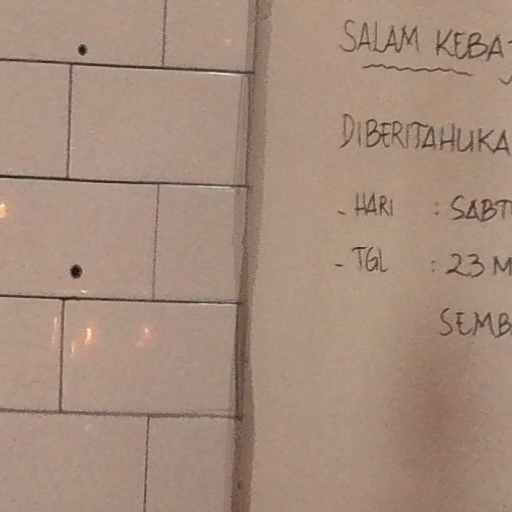 SALAM KEBA
DIBERITAHUKA
- HARI : SABT
- TGL : 23 M
SEMB